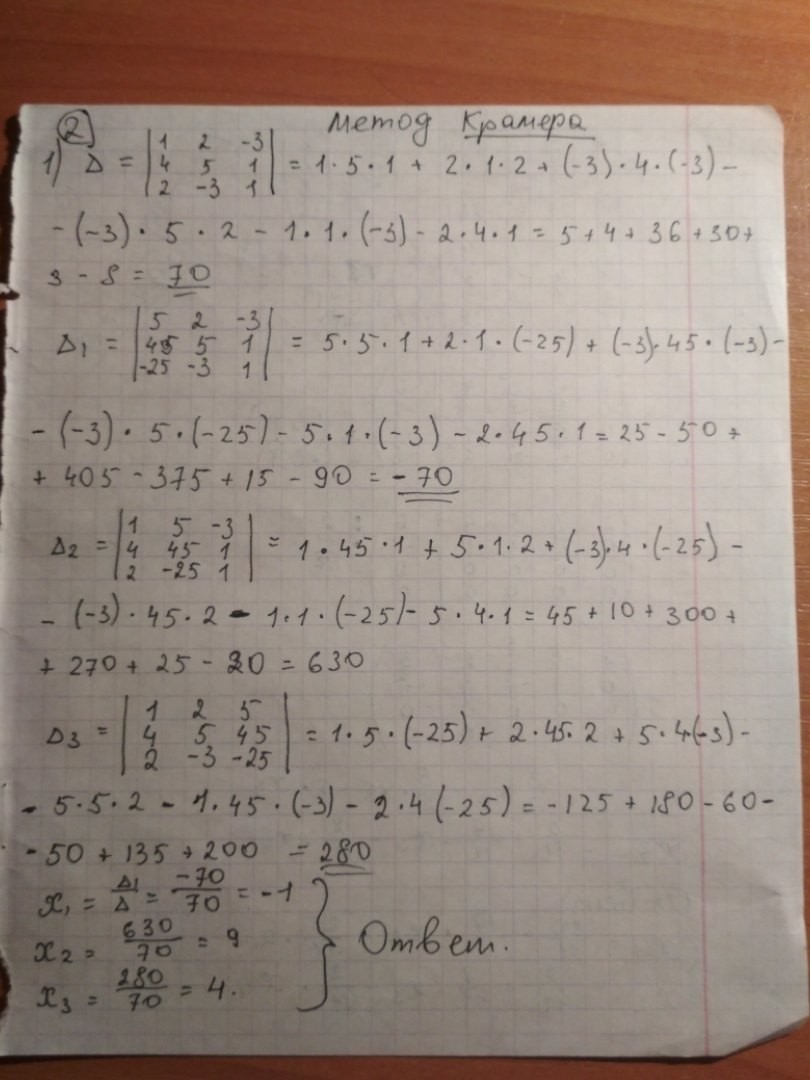 2) Метод Крамера
1) Δ = | 1 2 -3 |
| 4 5 1 |
| 2 -3 1 | = 1·5·1 + 2·1·2 + (-3)·4·(-3) -
- (-3)·5·2 - 1·1·(-3) - 2·4·1 = 5 + 4 + 36 + 30 +
3 - 8 = 70
Δ1 = | 5 2 -3 |
| 45 5 1 |
| -25 -3 1 | = 5·5·1 + 2·1·(-25) + (-3)·45·(-3) -
- (-3)·5·(-25) - 5·1·(-3) - 2·45·1 = 25 - 50 +
+ 405 - 375 + 15 - 90 = - 70
Δ2 = | 1 5 -3 |
| 4 45 1 |
| 2 -25 1 | = 1·45·1 + 5·1·2 + (-3)·4·(-25) -
- (-3)·45·2 - 1·1·(-25) - 5·4·1 = 45 + 10 + 300 +
+ 270 + 25 - 20 = 630
Δ3 = | 1 2 5 |
| 4 5 45 |
| 2 -3 -25 | = 1·5·(-25) + 2·45·2 + 5·4(-3) -
- 5·5·2 - 1·45·(-3) - 2·4(-25) = -125 + 180 - 60 -
- 50 + 135 + 200 = 280
x1 = Δ1/Δ = -70/70 = -1
x2 = 630/70 = 9
x3 = 280/70 = 4.
} Ответ.